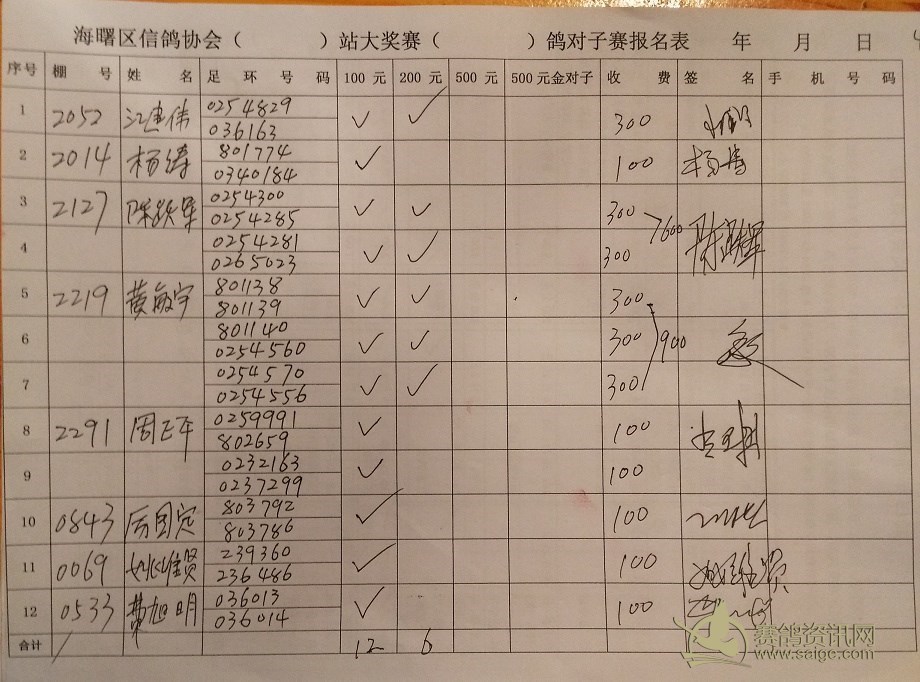 海曙区信鸽协会（ ）站大奖赛（ ）鸽对子赛报名表 年 月 日
序号 棚号 姓名 足环号码 100元 200元 500元 500元金对子 收费 签名 手机号码
1 2052 江建伟 0254829 ✓ ✓ 300
036163
2 2014 杨涛 801774 ✓ 100 杨涛
0340184
3 2127 陈跃军 0254300 ✓ ✓ 300
0254285
600
4 0254281 ✓ ✓ 300
0265023
5 2219 黄敏宇 801138 ✓ ✓ 300
801139
6 801140 ✓ ✓ 300 900
0254560
7 0254570 ✓ ✓ 300
0254556
8 2291 周正平 0259991 ✓ 100
802659
9 0232163 ✓ 100
0237299
10 0843 厉国定 803792 ✓ 100
803786
11 0069 姚维贤 239360 ✓ 100 姚维贤
236486
12 0533 费旭明 036013 ✓ 100
036014
合计 / 12 6
赛鸽资讯网
www.saige.com